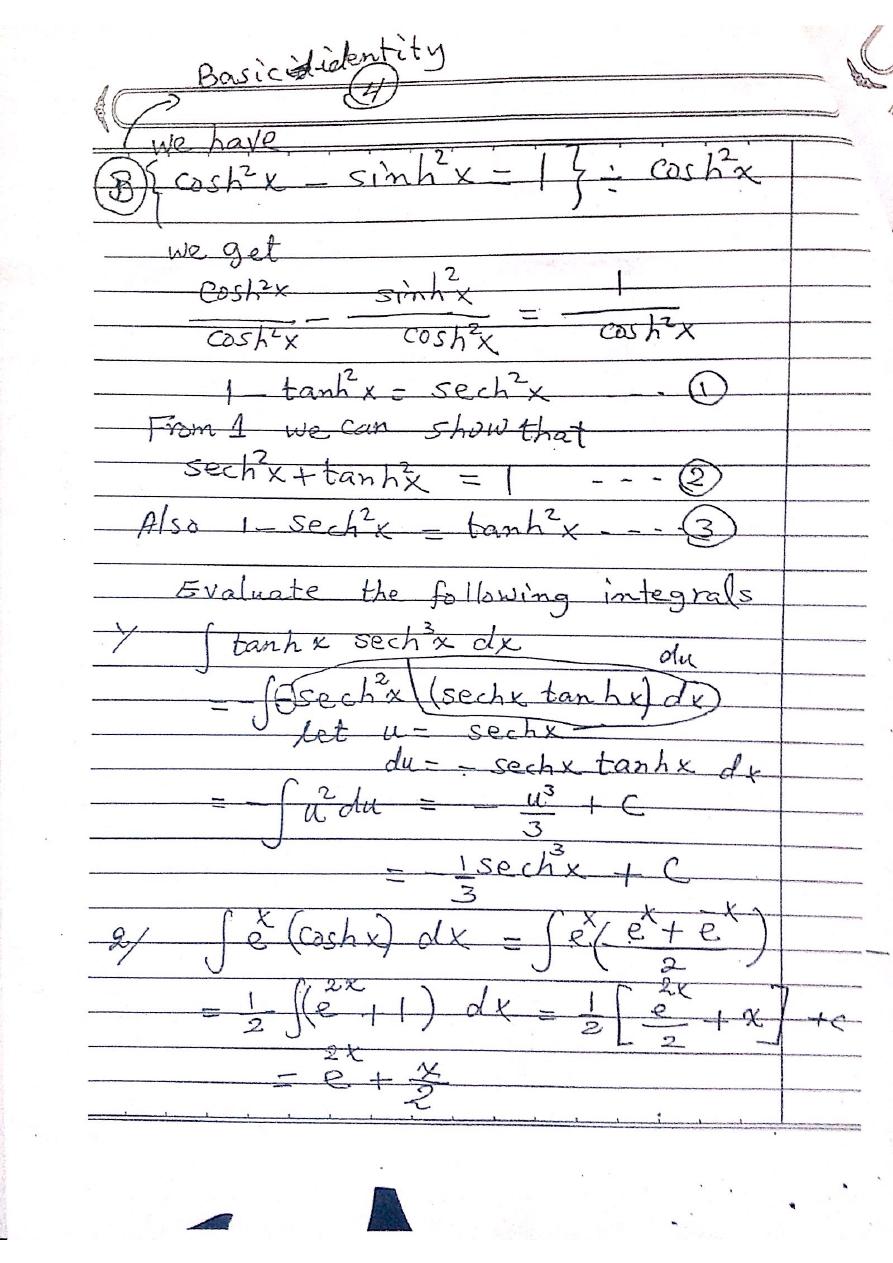 Basic identity
④
we have
Ⓑ { cosh²x − sinh²x = 1 } ÷ cosh²x
we get
cosh²x/cosh²x − sinh²x/cosh²x = 1/cosh²x
1 − tanh²x = sech²x - - ①
From 1 we can show that
sech²x + tanh²x = 1 - - - ②
Also 1 − sech²x = tanh²x - - - ③
Evaluate the following integrals
1/ ∫ tanh x sech³x dx
du
= −∫ − sech²x (sechx tanhx) dx
let u = sechx
du = − sechx tanhx dx
= −∫ u² du = − u³/3 + C
= − 1/3 sech³x + C
2/ ∫ eˣ (coshx) dx = ∫ eˣ( (eˣ + e⁻ˣ)/2 )
= 1/2 ∫(e²ˣ + 1) dx = 1/2 [ e²ˣ/2 + x ] + c
= e²ˣ + x/2